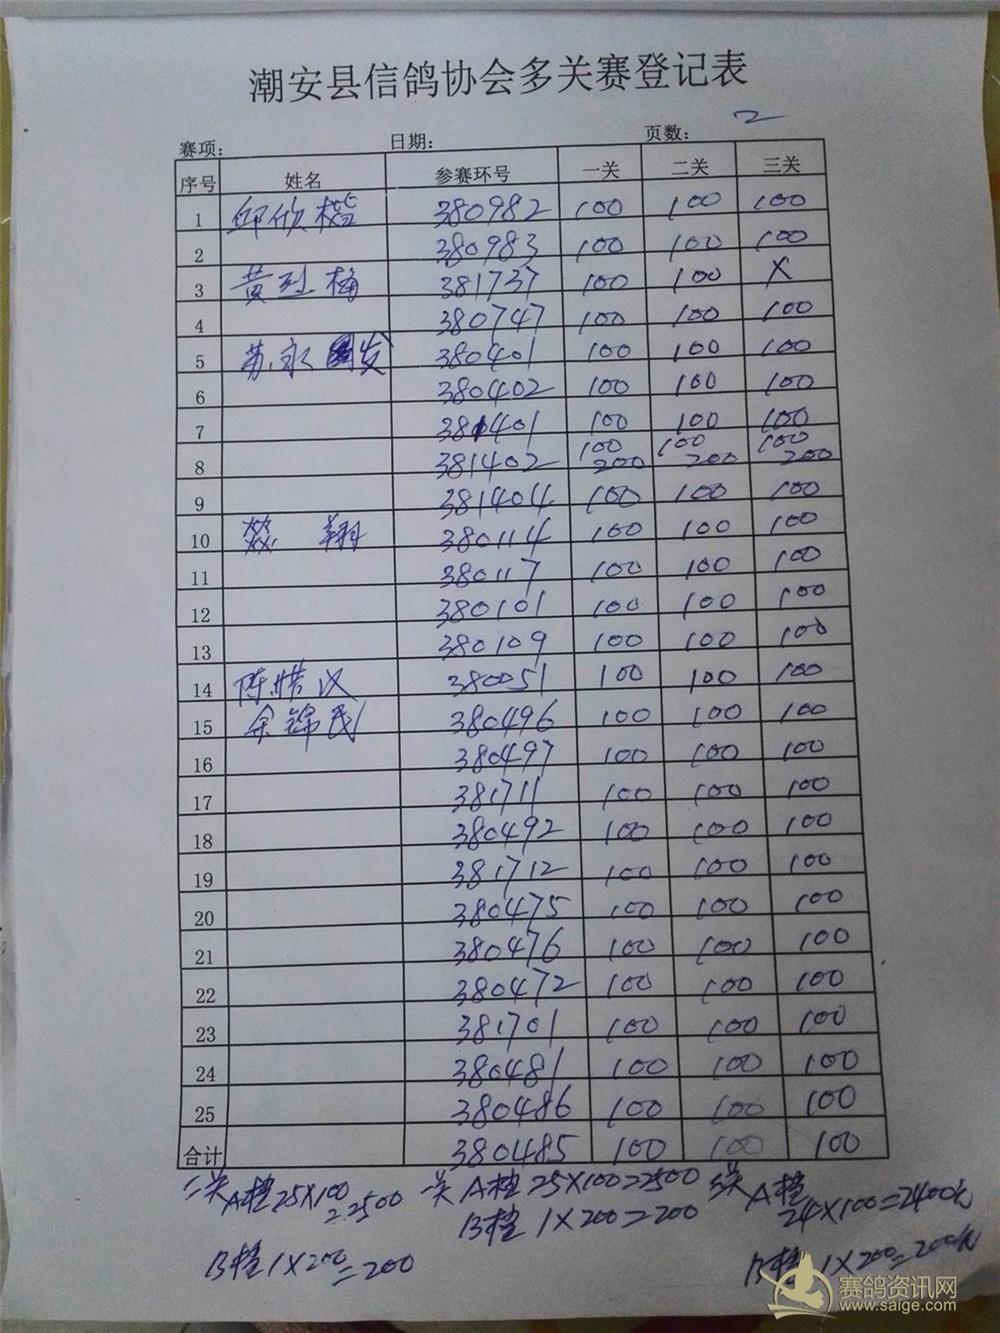 潮安县信鸽协会多关赛登记表
2
赛项： 日期： 页数：
序号 姓名 参赛环号 一关 二关 三关
1 邱欣楷 380982 100 100 100
2 380983 100 100 100
3 黄烈楠 381737 100 100 X
4 380747 100 100 100
5 苏永发 380401 100 100 100
6 380402 100 100 100
7 381401 100 100 100
8 381402 100 200 100 200 100 200
9 381404 100 100 100
10 翔 380114 100 100 100
11 380117 100 100 100
12 380101 100 100 100
13 380109 100 100 100
14 陈惜汉 380051 100 100 100
15 余锦民 380496 100 100 100
16 380497 100 100 100
17 381711 100 100 100
18 380492 100 100 100
19 381712 100 100 100
20 380475 100 100 100
21 380476 100 100 100
22 380472 100 100 100
23 381701 100 100 100
24 380481 100 100 100
25 380486 100 100 100
合计 380485 100 100 100
二关 A档 25X100=2500 一关 A档 25X100=2500 三关 A档 24X100=2400元
B档 1X200=200 B档 1X200=200 B档 1X200=200元
赛鸽资讯网
www.saige.com